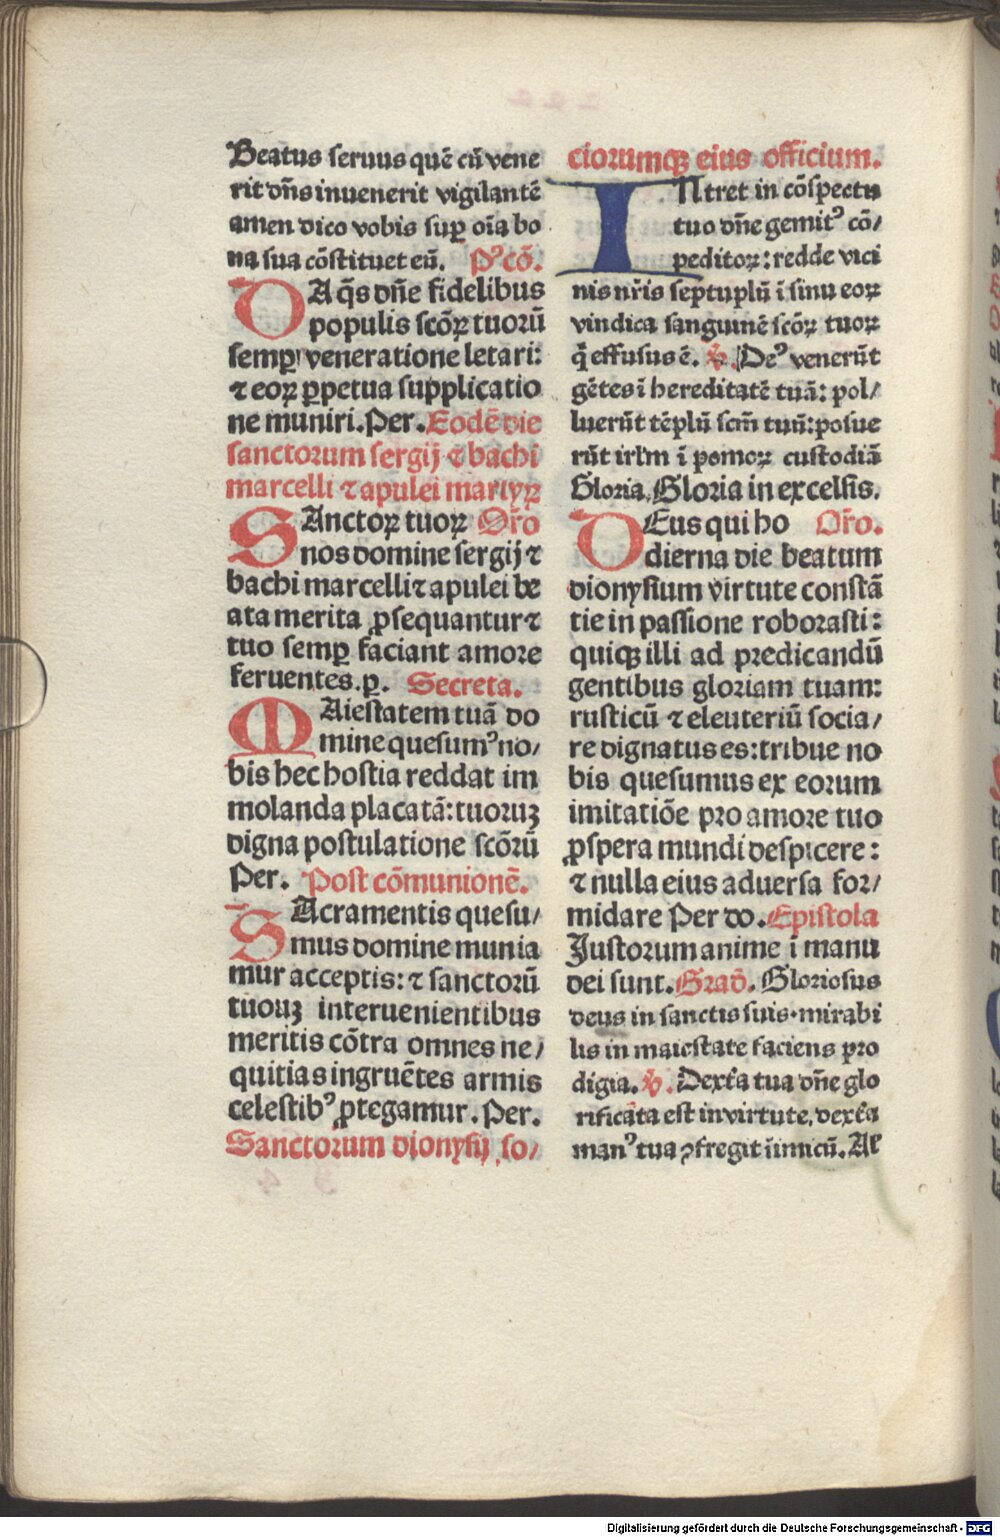 Beatus seruus quē cū vene
rit dn̄s inuenerit vigilantē
amen dico vobis sup̄ oīa bo
na sua cōstituet eū. Pꝰcō.
DA q̄s dn̄e fidelibus
populis scōꝝ tuorū
semꝑ veneratione letari:
⁊ eoꝝ ꝑpetua supplicatio
ne muniri. Per. Eodē die
sanctorum sergij ⁊ bachi
marcelli ⁊ apulei martyꝝ
SAnctoꝝ tuoꝝ Oro
nos domine sergij ⁊
bachi marcelli ⁊ apulei be
ata merita ꝓsequantur ⁊
tuo semꝑ faciant amore
feruentes. ꝑ. Secreta.
MAiestatem tuā do
mine quesumꝰ no/
bis hec hostia reddat im
molanda placatā: tuoruꝫ
digna postulatione scōrū
Per. Post cōmunionē.
SAcramentis quesu/
mus domine munia
mur acceptis: ⁊ sanctorū
tuoꝝ interuenientibus
meritis cōtra omnes ne/
quitias ingruētes armis
celestibꝰ ꝓtegamur. Per.
Sanctorum dionysij so/
ciorumqꝫ eius officium.
INtret in cōspectu
tuo dn̄e gemitꝰ cō/
peditoꝝ: redde vici
nis nr̄is septuplū ī sinu eoꝝ
vindica sanguinē scōꝝ tuoꝝ
q̄ effusus ē. ℣. Deꝰ venerūt
gētes ī hereditatē tuā: pol/
luerūt tēplū scm̄ tuū: posue
rūt irlm̄ ī pomoꝝ custodiā
Gloria. Gloria in excelsis.
DEus qui ho Oro.
dierna die beatum
dionysium virtute constā
tie in passione roborasti:
quiqꝫ illi ad predicandū
gentibus gloriam tuam:
rusticū ⁊ eleuteriū socia/
re dignatus es: tribue no
bis quesumus ex eorum
imitatiōe pro amore tuo
ꝓspera mundi despicere:
⁊ nulla eius aduersa for/
midare Per do. Epistola
Justorum anime ī manu
dei sunt. Grad̄. Gloriosus
deus in sanctis suis. mirabi
lis in maiestate faciens pro
digia. ℣. Dext̄a tua dn̄e glo
rificata est in virtute, dext̄a
manꝰ tua ꝯfregit īimicū. Al
Digitalisierung gefördert durch die Deutsche Forschungsgemeinschaft - DFG